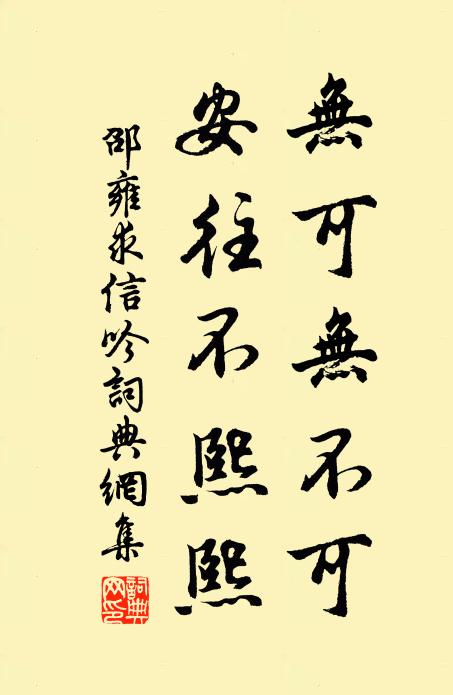 無可無不可
安往不熙熙
邵雍求信吟詞典網集
詞典
網印